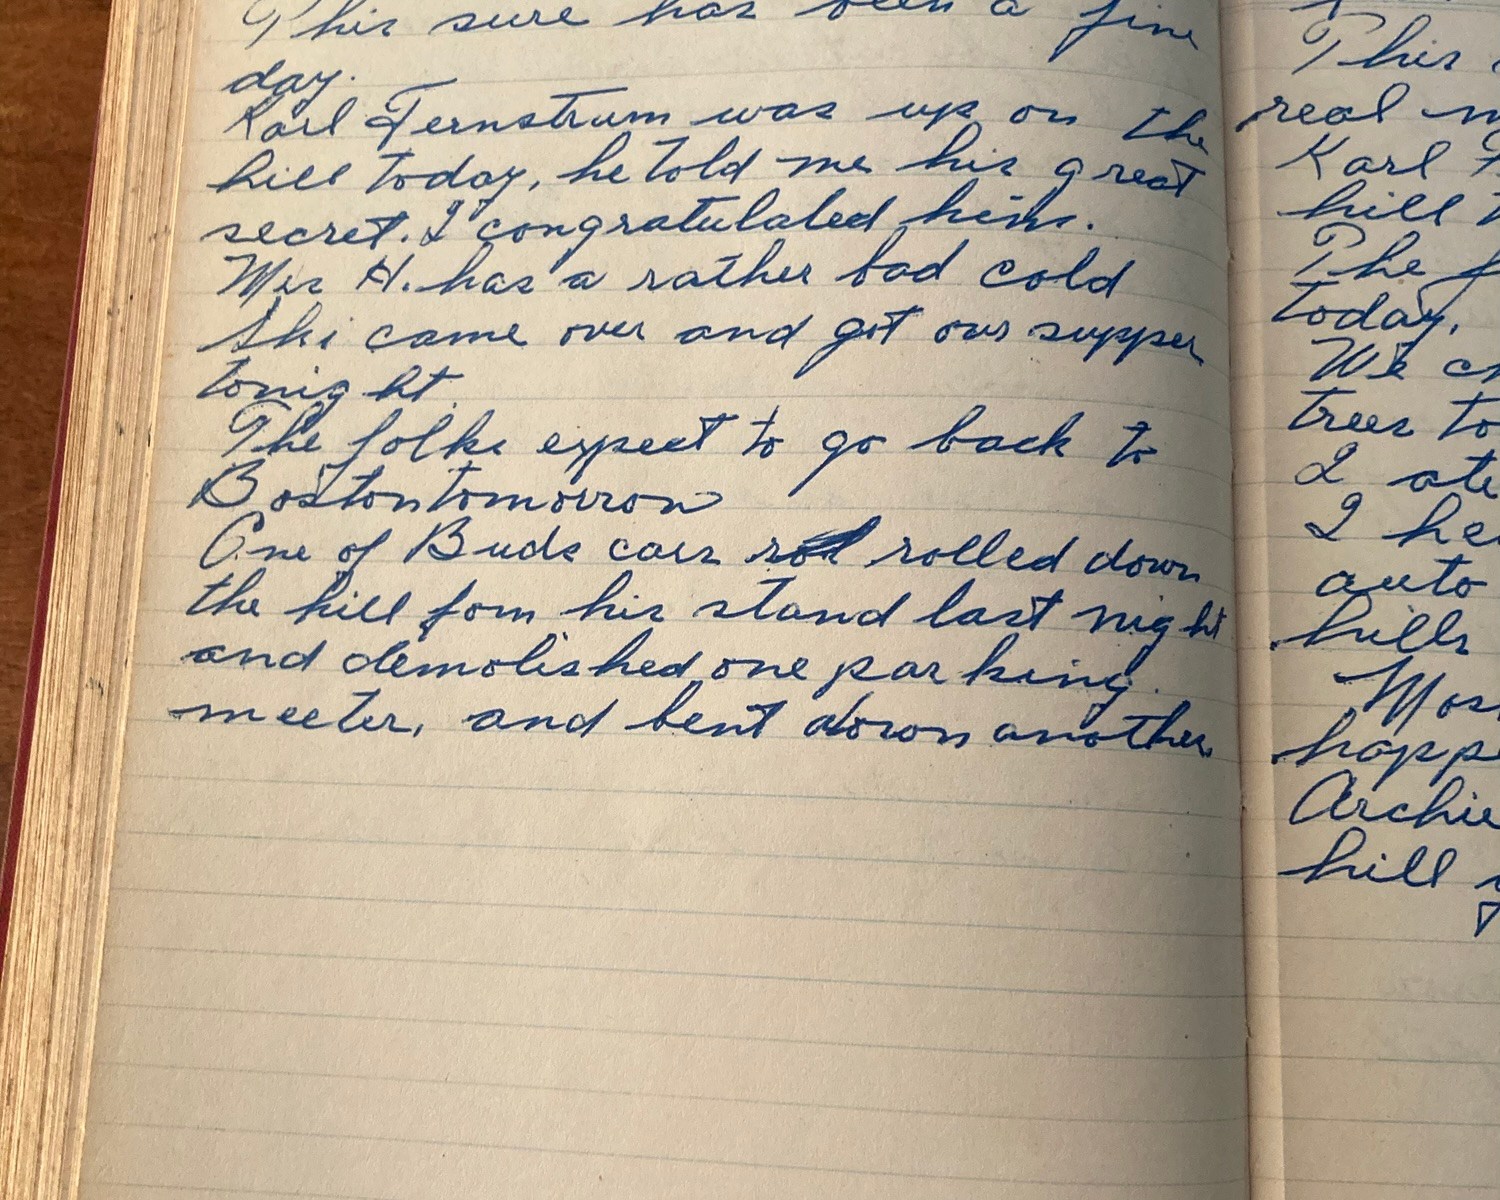 This sure has been a fine
day.
Karl Fernstrum was up on the
hill today, he told me his great
secret. I congratulated him.
Mrs H. has a rather bad cold
Ski came over and got our supper
tonight.
The folks expect to go back to
Boston tomorrow
One of Buds cars rolled down
the hill fom his stand last night
and demolished one parking
meeter, and bent down another.
This
real
Karl
hill
The
today,
We
trees to
I ate
I
auto
hills
Archie
hill